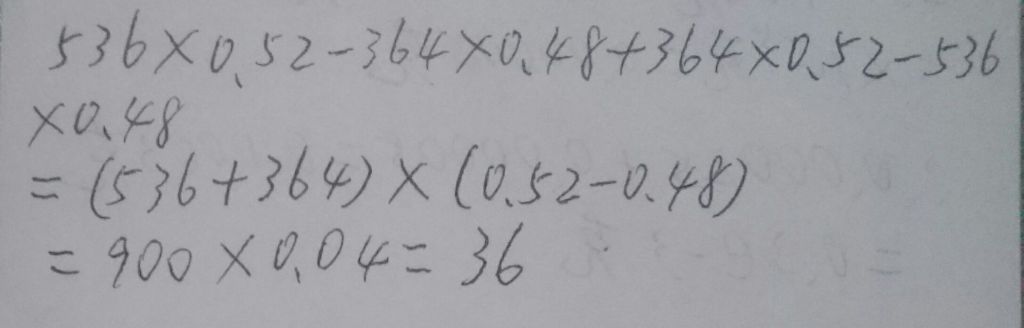 536×0.52-364×0.48+364×0.52-536
×0.48
=(536+364)×(0.52-0.48)
=900×0.04=36